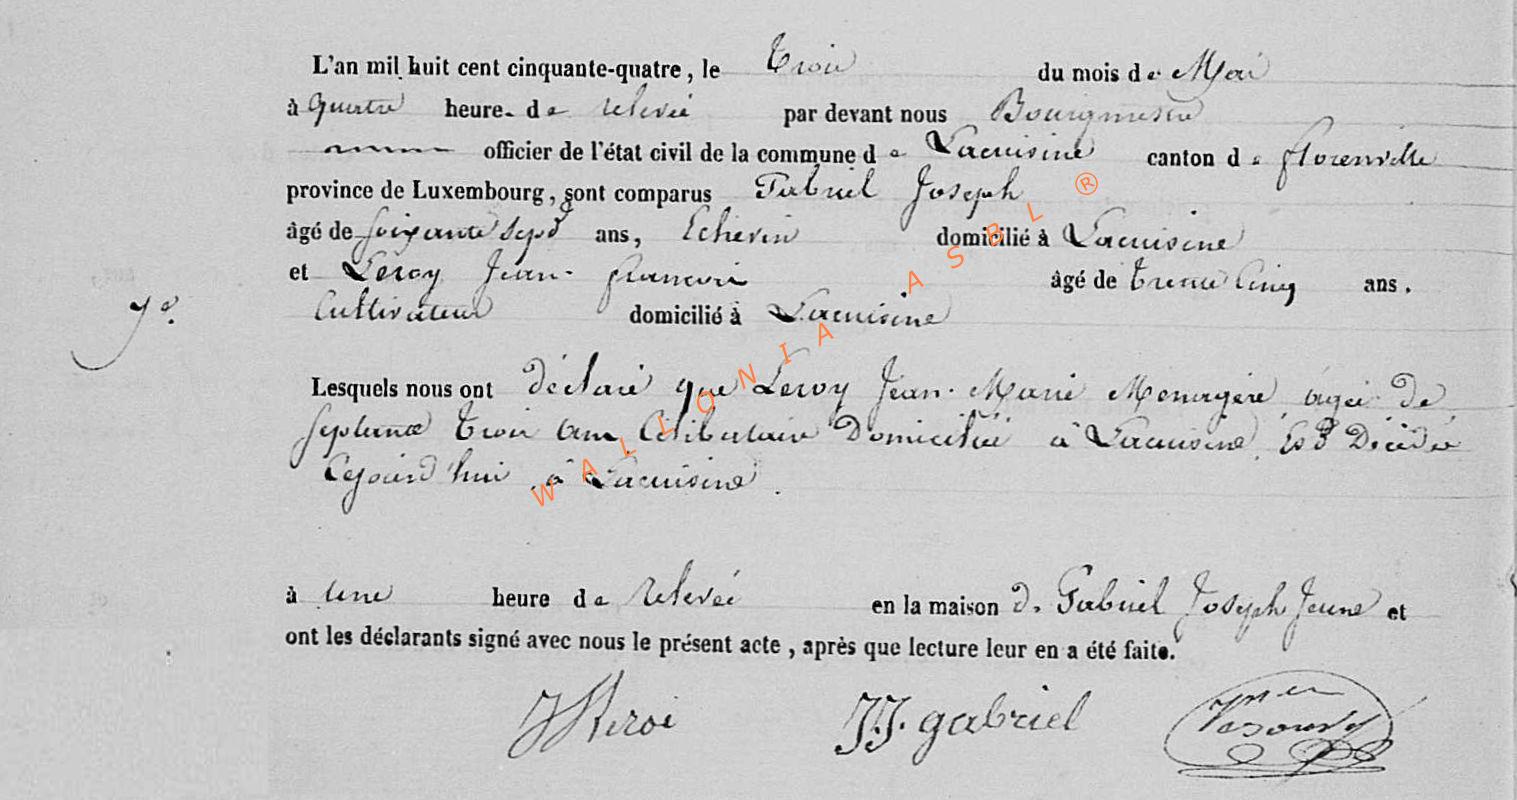 L'an mil huit cent cinquante-quatre, le trois du mois de Mai
à quatre heure. de relevée par devant nous Bourgmestre
officier de l'état civil de la commune de Lacuisine canton de florenville
province de Luxembourg, sont comparus Gabriel Joseph
âgé de soixante sept ans, Echevin domicilié à Lacuisine
et Leroy Jean francois âgé de trente Cinq ans.
Cultivateur domicilié à Lacuisine
7e.
Lesquels nous ont déclaré que Leroy Jean-Marie Menagère agée de
septante trois ans Celibataire Domiciliée à Lacuisine, Est Décédée
Cejourd'hui à Lacuisine.
à une heure de relevée en la maison de Gabriel Joseph Jeune et
ont les déclarants signé avec nous le présent acte, après que lecture leur en a été faite.
Leroi J.J. gabriel
WALLONIA ASBL ®